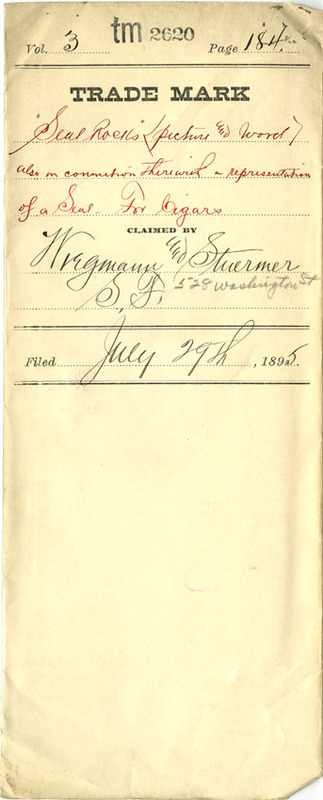 Vol. 3 tm 2620 Page 184
TRADE MARK
"Seal Rocks" (picture and word)
also in connection therewith a representation
of a Seal For Cigars
CLAIMED BY
Wiegmann and Stuermer
S. F. 528 Washington St
Filed July 29th, 1895